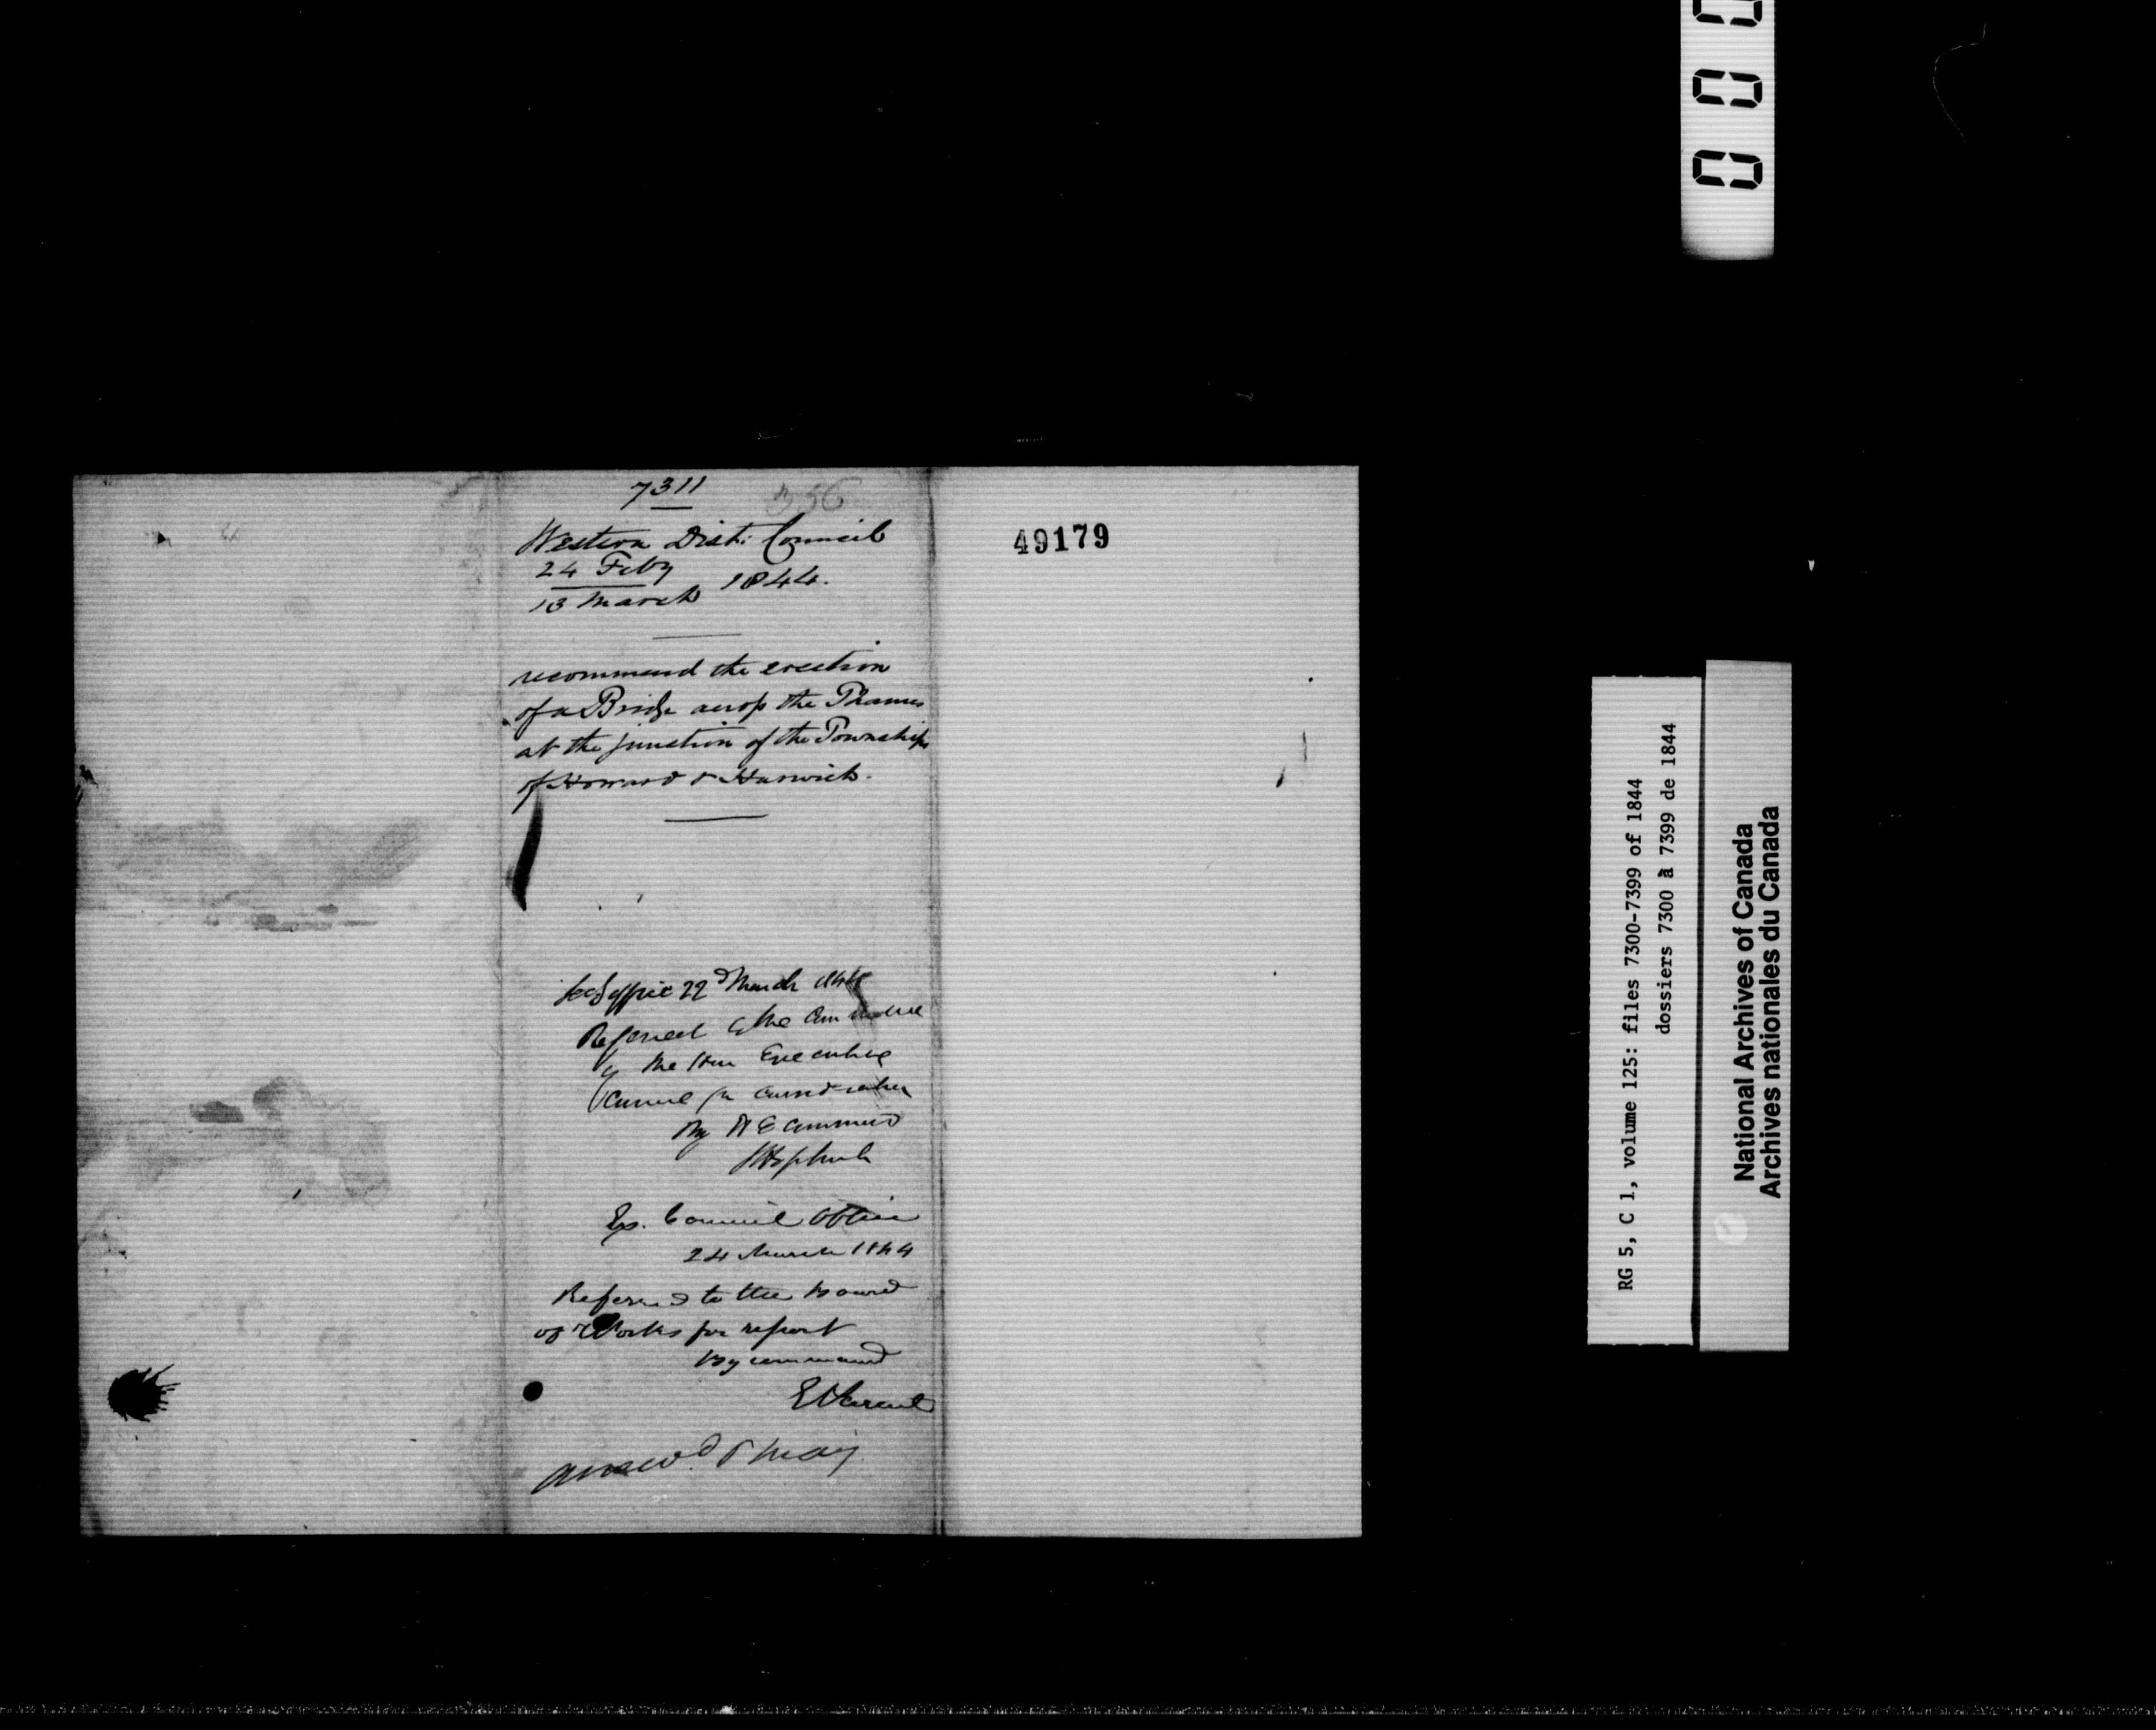 7311
356
Western Dist: Council
24 Feby
13 March 1844.
recommend the erection
of a Bridge across the Thames
at the junction of the Townships
of Howard & Harwich.
Secy Office 22d March 1844
Referred to the Committee
of the Hon Executive
Council for consideration
By H E Command
Ex. Council Office
24 March 1844
Referred to the Board
of Works for report
By command
E Parent
answd. 8 May
49179
RG 5, C 1, volume 125: files 7300-7399 of 1844
dossiers 7300 à 7399 de 1844
National Archives of Canada
Archives nationales du Canada
0 0 0